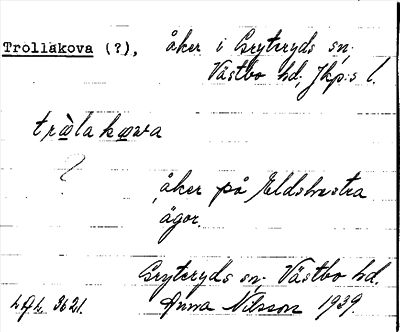 Trollakova (?), åker i Gryteryds sn.
Västbo hd, Jkp:s l.
träla kova
?
åker på Eldshestra
ägor.
Gryteryds sn. Västbo hd.
3621. Anna Nilsson 1939.